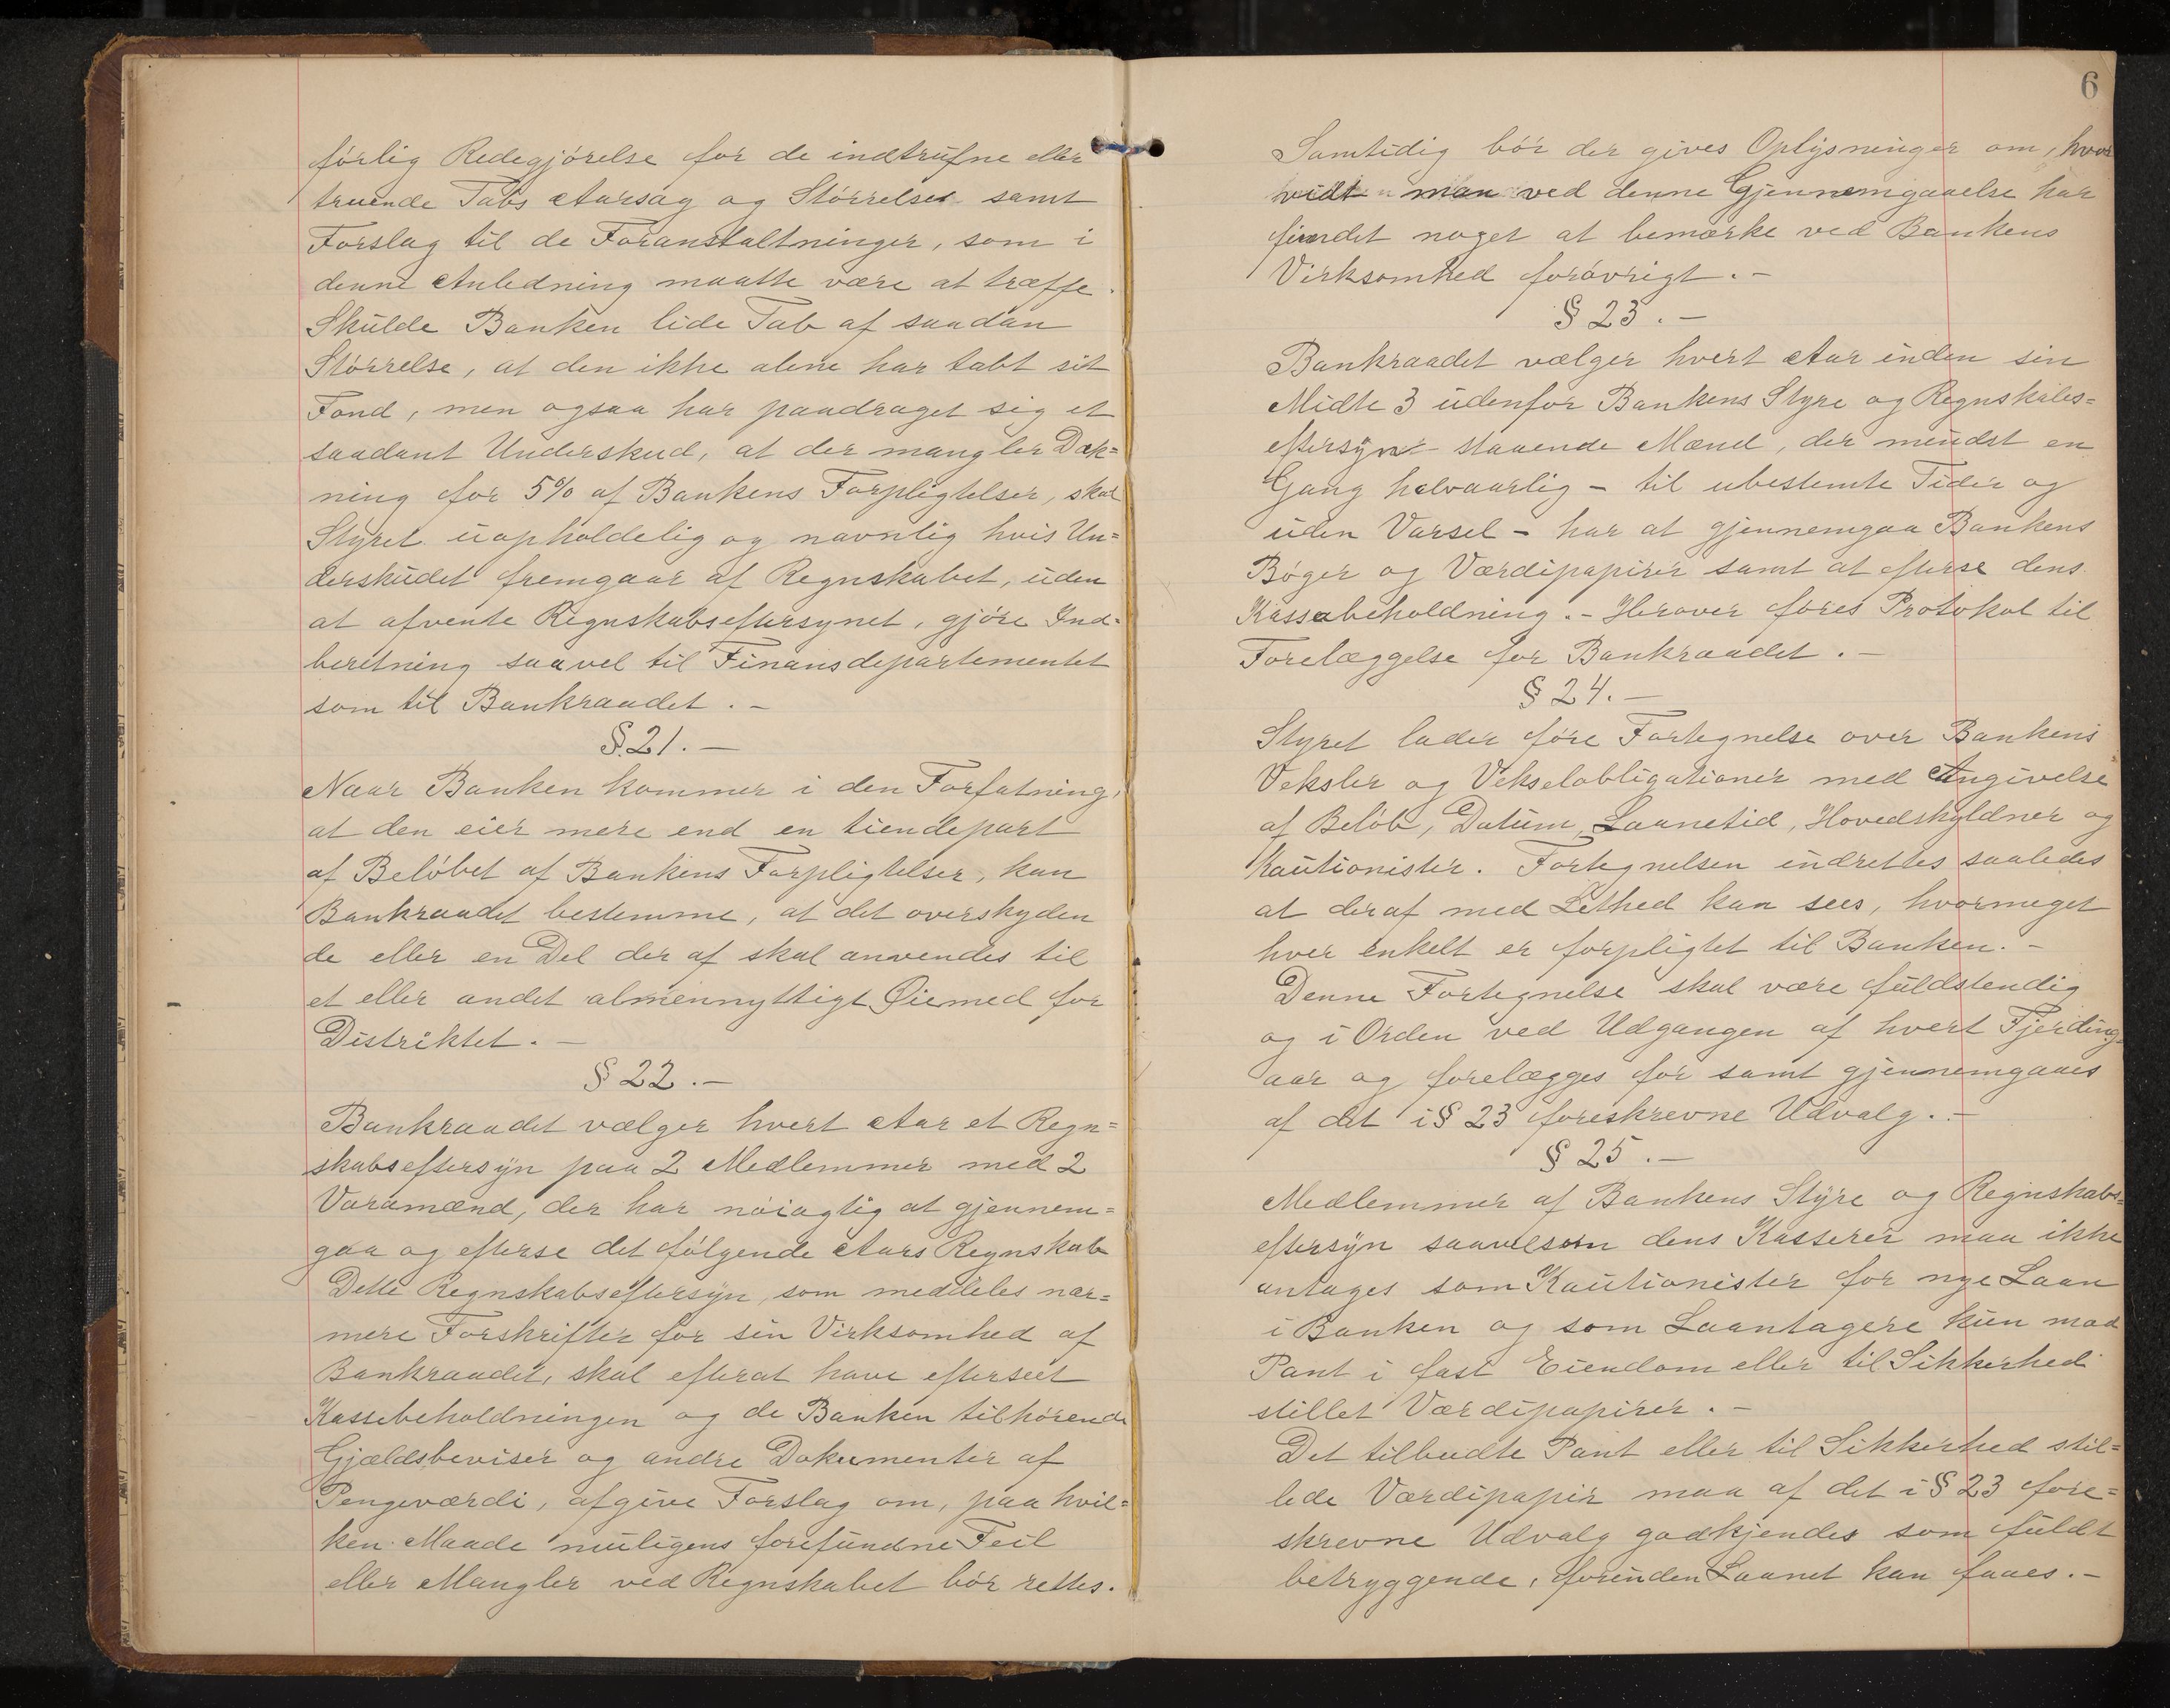 førlig Redegjørelse for de indtrufne eller
truende Tabs Aarsag og Størrelse samt
Forslag til de Foranstaltninger, som i
denne Anledning maatte være at træffe.
Skulde Banken lide Tab af saadan
Størrelse, at den ikke alene har tabt sit
Fond, men ogsaa har paadraget sig et
saadant Underskud, at der mangler Dæk=
ning for 5% af Bankens Forpligtelser, skal
Styret uopholdelig og navnlig hvis Un=
derskudet fremgaar af Regnskabet, uden
at afvente Regnskabseftersynet, gjøre Ind=
beretning saavel til Finansdepartementet
som til Bankraadet. -
§ 21. -
Naar Banken kommer i den Forfatning,
at den eier mere end en tiendepart
af Beløbet af Bankens Forpligtelser, kan
Bankraadet bestemme, at det overskyden
de eller en Del der af skal anvendes til
et eller andet almennyttigt Øiemed for
Distriktet. -
§ 22. -
Bankraadet vælger hvert Aar et Regn=
skabseftersyn paa 2 Medlemmer med 2
Varamænd, der har nøiagtig at gjennem=
gaa og efterse det følgende Aars Regnskab
Dette Regnskabseftersyn, som meddeles nær=
mere Forskrifter for sin Virksomhed af
Bankraadet, skal efterat have efterseet
Kassebeholdningen og de Banken tilhørende
Gjældsbeviser og andre Dokumenter af
Pengeværdi, afgive Forslag om, paa hvil=
ken Maade muligens forefundne Feil
eller Mangler ved Regnskabet bør rettes.
6
Samtidig bør der gives Oplysninger om, hvor
vidt man ved denne Gjennemgaaelse har
fundet noget at bemærke ved Bankens
Virksomhed forøvrigt. -
§ 23. -
Bankraadet vælger hvert Aar inden sin
Midte 3 udenfor Bankens Styre og Regnskabs=
eftersyn staaende Mænd, der mindst en
Gang halvaarlig - til ubestemte Tider og
uden Varsel - har at gjennemgaa Bankens
Bøger og Værdipapirer samt at efterse dens
Kassabeholdning. - Herover føres Protokol til
Forelæggelse for Bankraadet. -
§ 24. -
Styret lader føre Fortegnelse over Bankens
Veksler og Vekselobligationer med Angivelse
af Beløb, Datum, Laanetid, Hovedskyldner og
Kautionister. Fortegnelsen indrettes saaledes
at deraf med Lethed kan sees, hvormeget
hver enkelt er forpligtet til Banken. -
Denne Fortegnelse skal være fuldstendig
og i Orden ved Udgangen af hvert Fjerding=
aar og forelægges for samt gjennemgaaes
af det i § 23 foreskrevne Udvalg. -
§ 25. -
Medlemmer af Bankens Styre og Regnskabs=
eftersyn saavelsom dens Kasserer maa ikke
antages som Kautionister for nye Laan
i Banken og som Laantagere kun mod
Pant i fast Eiendom eller til Sikkerhed
stillet Værdipapirer. -
Det tilbudte Pant eller til Sikkerhed stil=
lede Værdipapir maa af det i § 23 fore=
skrevne Udvalg godkjendes som fuldt
betryggende, forinden Laanet kan faaes. -